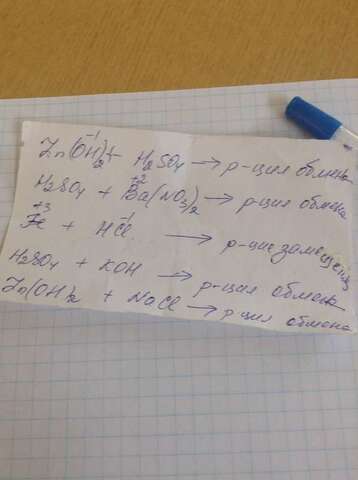 Zn(OH)₂⁻¹ + H₂SO₄ → р-ция обмена
H₂SO₄ + Ba⁺²(NO₃)₂ → р-ция обмена
Fe⁺³ + HCl⁻¹ → р-ция замещения
H₂SO₄ + KOH → р-ция обмена
Zn(OH)₂ + NaCl → р-ция обмена